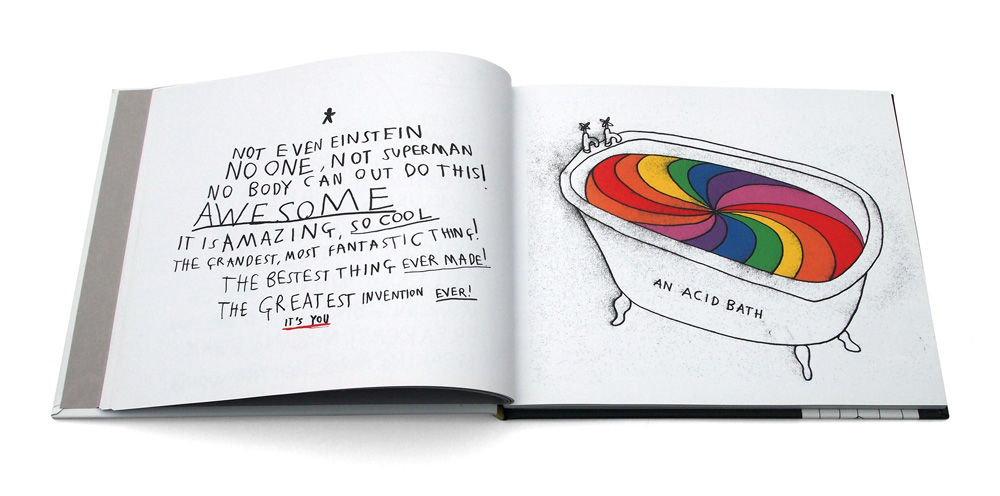 NOT EVEN EINSTEIN
NO ONE, NOT SUPERMAN
NO BODY CAN OUT DO THIS!
AWESOME
IT IS AMAZING, SO COOL
THE GRANDEST, MOST FANTASTIC THING!
THE BESTEST THING EVER MADE!
THE GREATEST INVENTION EVER!
IT'S YOU
AN ACID BATH